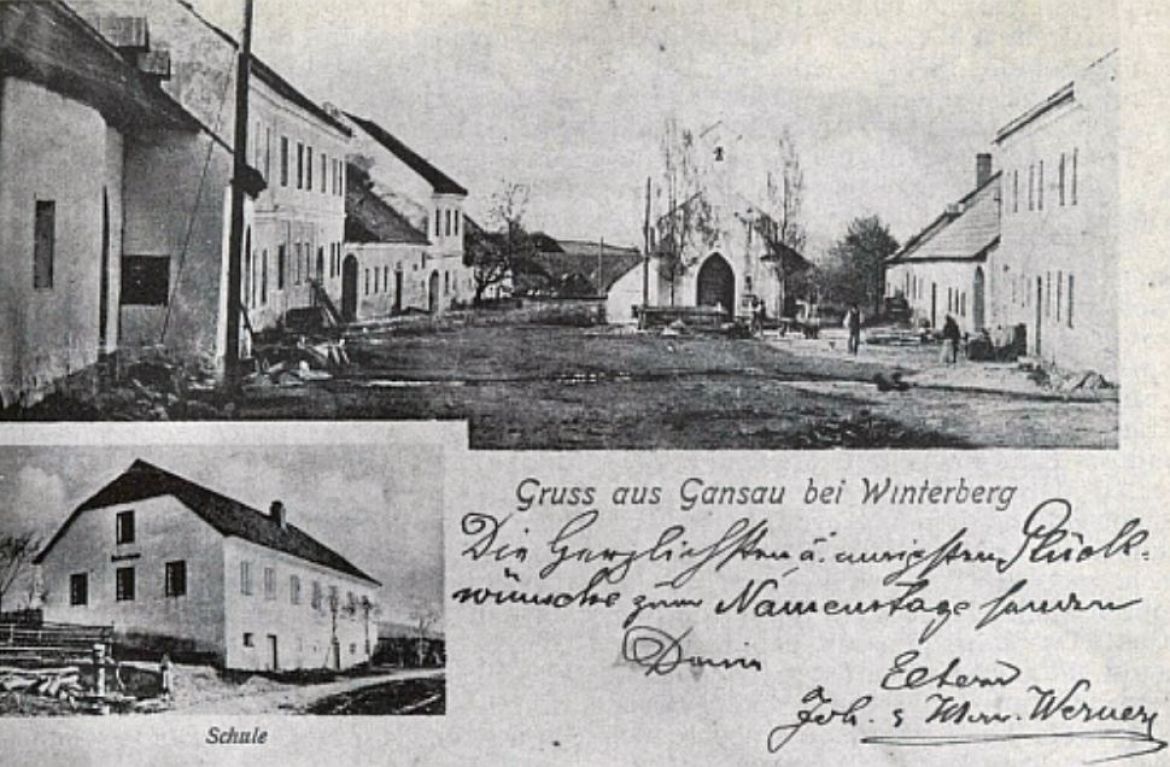 Gruss aus Gansau bei Winterberg
Die Herzlichsten u. innigsten Glück-
wünsche zum Namenstage senden
Eltern
Joh. & Werner
Schule